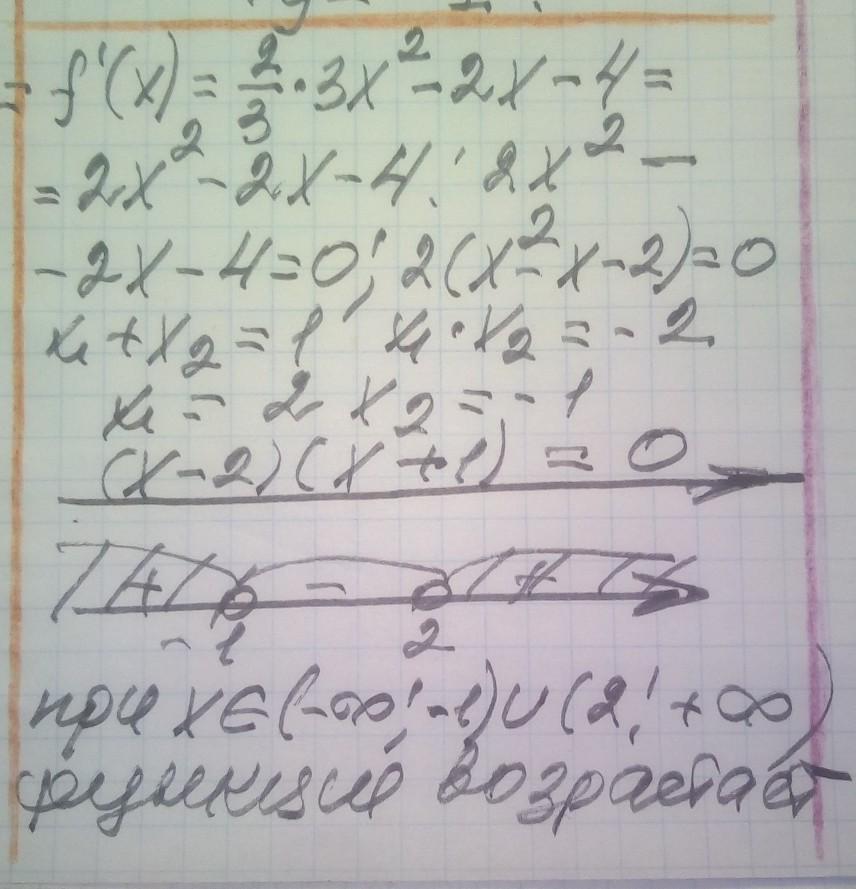 = f'(x) = 2/3 · 3x² - 2x - 4 =
= 2x² - 2x - 4; 2x² -
- 2x - 4 = 0; 2(x² - x - 2) = 0
x₁ + x₂ = 1 x₁ · x₂ = - 2
x₁ = 2 x₂ = - 1
(x - 2)(x + 1) = 0
+ - +
-1 2
при x ∈ (-∞; -1) ∪ (2; +∞)
функция возрастает